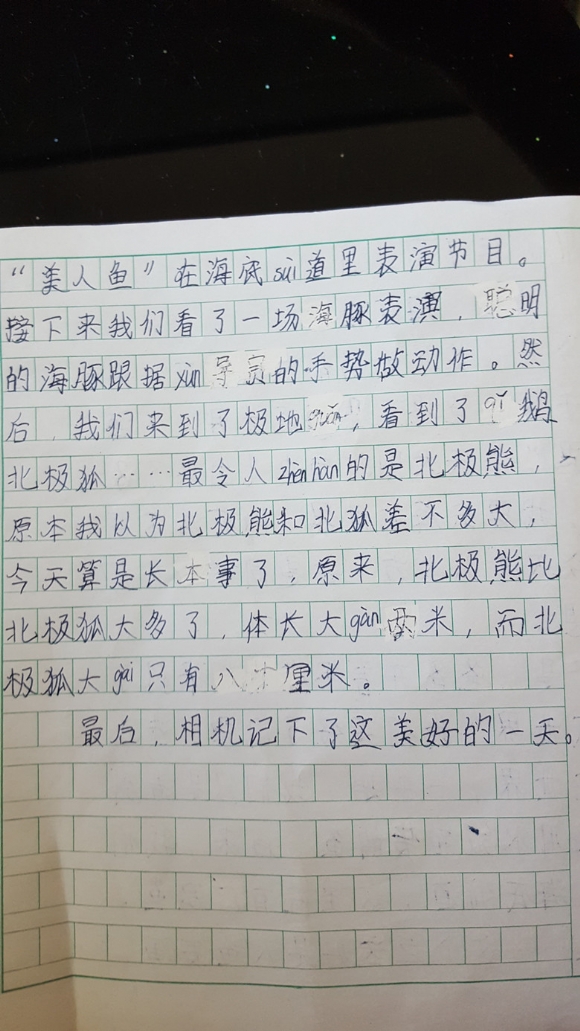 “美人鱼”在海底suì道里表演节目。
接下来我们看了一场海豚表演，聪明
的海豚跟据xùn导员的手势做动作。然
后，我们来到了极地guǎn，看到了qǐ鹅
北极狐……最令人zhènhàn的是北极熊，
原本我以为北极熊和北狐差不多大，
今天算是长本事了，原来，北极熊比
北极狐大多了，体长大gàn米，而北
极狐大gài只有八十厘米。
最后，相机记下了这美好的一天。